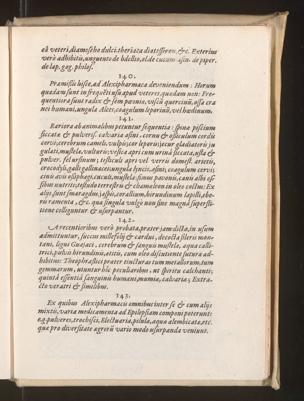 ab veteri, diamoscho dulci, theriaca diatesseron, &c. Exterius
vero adhibitis, unguento de bdellio,
de lap. gag. philos.
140.
Præmissis hisce, ad Alexipharmaca deveniendum: Horum
quædam sunt infrequentis usu apud veteres, quædam non: Fre-
quentiora sunt radix & sem pæoniæ, viscū quercinū, ossa cra
nei humani, ungula Alces, coagulum leporis, vel hœdinum.
141.
Rariora ab animalibus petuntur sequentia: spina piscium
siccata & pulveris. calvaria asini, cornu & ossiculum cordis
cervi, cerebrum cameli, vulpis; cor leporis; jecur gladiatoris ju
gulati, mustelæ, vulturis; vesica apri cum urina siccata, ossa &
pulver. fel ursinum; testiculi apri vel verris domest. arietis,
crocodyli, galli gallinacei; ungula lyncis, asini; coagulum cervi
sanguis
sibus nutriti, testudo terrestris & chamæleon in oleo coctus: Ex
alijs, sunt smaragdus, jaspis, corallium, hirundinum lapilli, ebo-
ris ramenta, &c. quæ singula vulgò non sine magna supersti-
tione colliguntur & usurpantur.
142.
A recentioribus verò probata, præter jam dicta, in usum
admittuntur, succus millefolij & cardui, electa fileris mon-
tani, ligni Guajaci, cerebrum & sanguis mustelæ, aqua calli-
trici, pulvis hirundinū, attici, cum oleo assiduitate futura ad-
hibitis: Theophrastici præter tincturas tum metallorum, tum
gemmarum, utuntur hîc peculiaribus, ut spiritu calchanti;
quintâ essentiâ sanguinis humani, mumia, calvaria; Extra-
cto veratri & similibus.
143.
Ex quibus Alexipharmacis omnibus inter se & cum alijs
mixtis, varia medicamenta ad Epilepsiam componi poterunt:
e.g. pulveres, trochisci, Electuaria, pilulæ, aqua alembicata, etc.
quæ pro diversitate agrorū vario modo usurpanda veniunt.